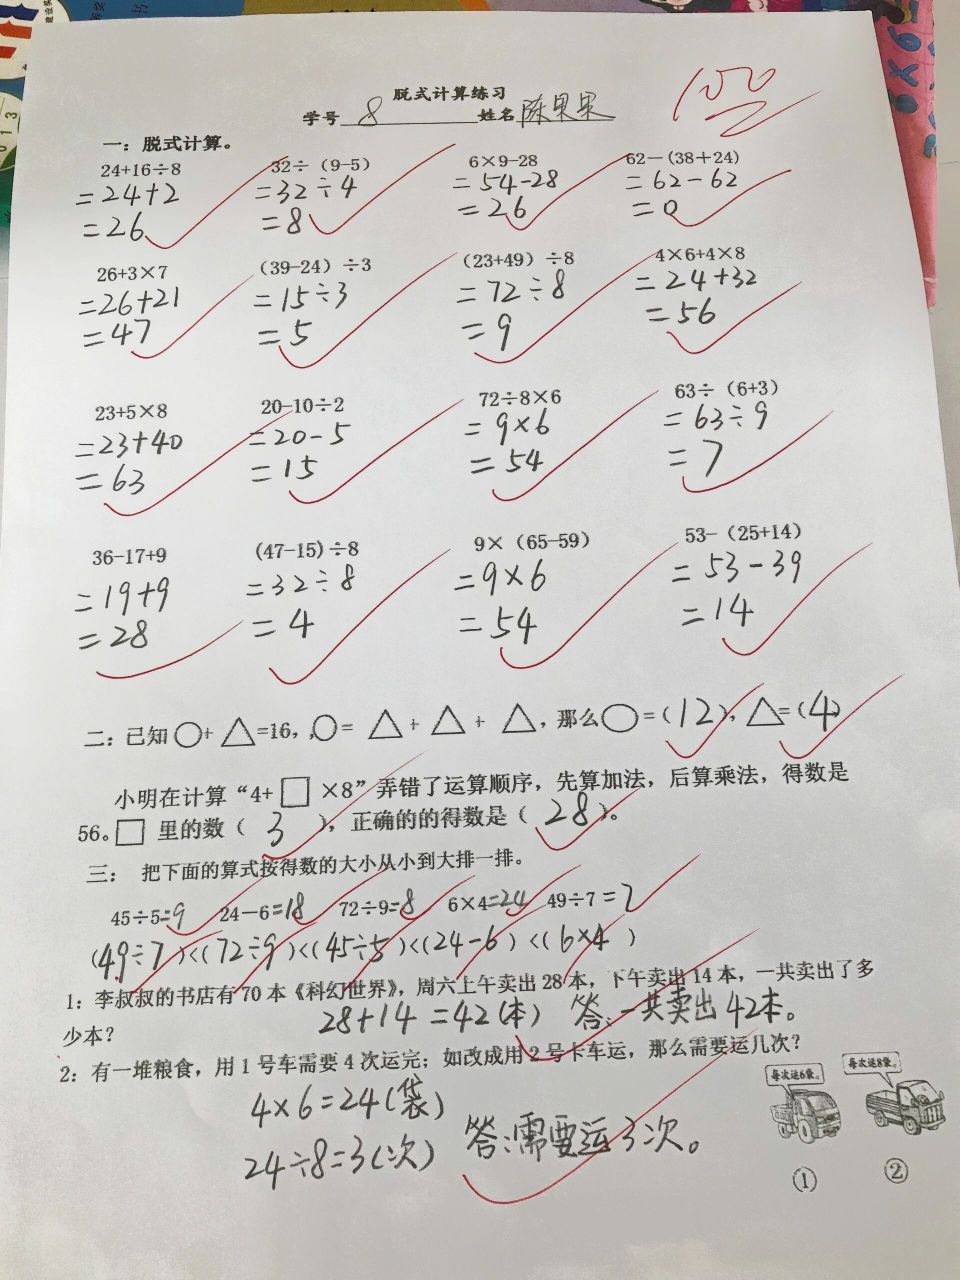 脱式计算练习
学号 8 姓名 陈果果
100
一：脱式计算。
24+16÷8 32÷（9-5） 6×9-28 62－(38＋24)
=24+2 =32÷4 =54-28 =62-62
=26 =8 =26 =0
26+3×7 （39-24）÷3 （23+49）÷8 4×6+4×8
=26+21 =15÷3 =72÷8 =24+32
=47 =5 =9 =56
23+5×8 20-10÷2 72÷8×6 63÷（6+3）
=23+40 =20-5 =9×6 =63÷9
=63 =15 =54 =7
36-17+9 (47-15)÷8 9×（65-59） 53-（25+14）
=19+9 =32÷8 =9×6 =53-39
=28 =4 =54 =14
二：已知○+△=16，○=△+△+△，那么○=(12)，△=(4)
小明在计算“4+□×8”弄错了运算顺序，先算加法，后算乘法，得数是
56。□里的数（3），正确的的得数是（28）。
三： 把下面的算式按得数的大小从小到大排一排。
45÷5=9 24－6=18 72÷9=8 6×4=24 49÷7=7
(49÷7)<(72÷9)<(45÷5)<(24-6)<(6×4)
1：李叔叔的书店有70本《科幻世界》，周六上午卖出28本，下午卖出14本，一共卖出了多
少本？ 28+14=42(本) 答：一共卖出42本。
2：有一堆粮食，用1号车需要4次运完；如改成用2号卡车运，那么需要运几次？
每次运6袋。 每次运8袋。
4×6=24(袋)
24÷8=3(次) 答：需要运3次。
① ②